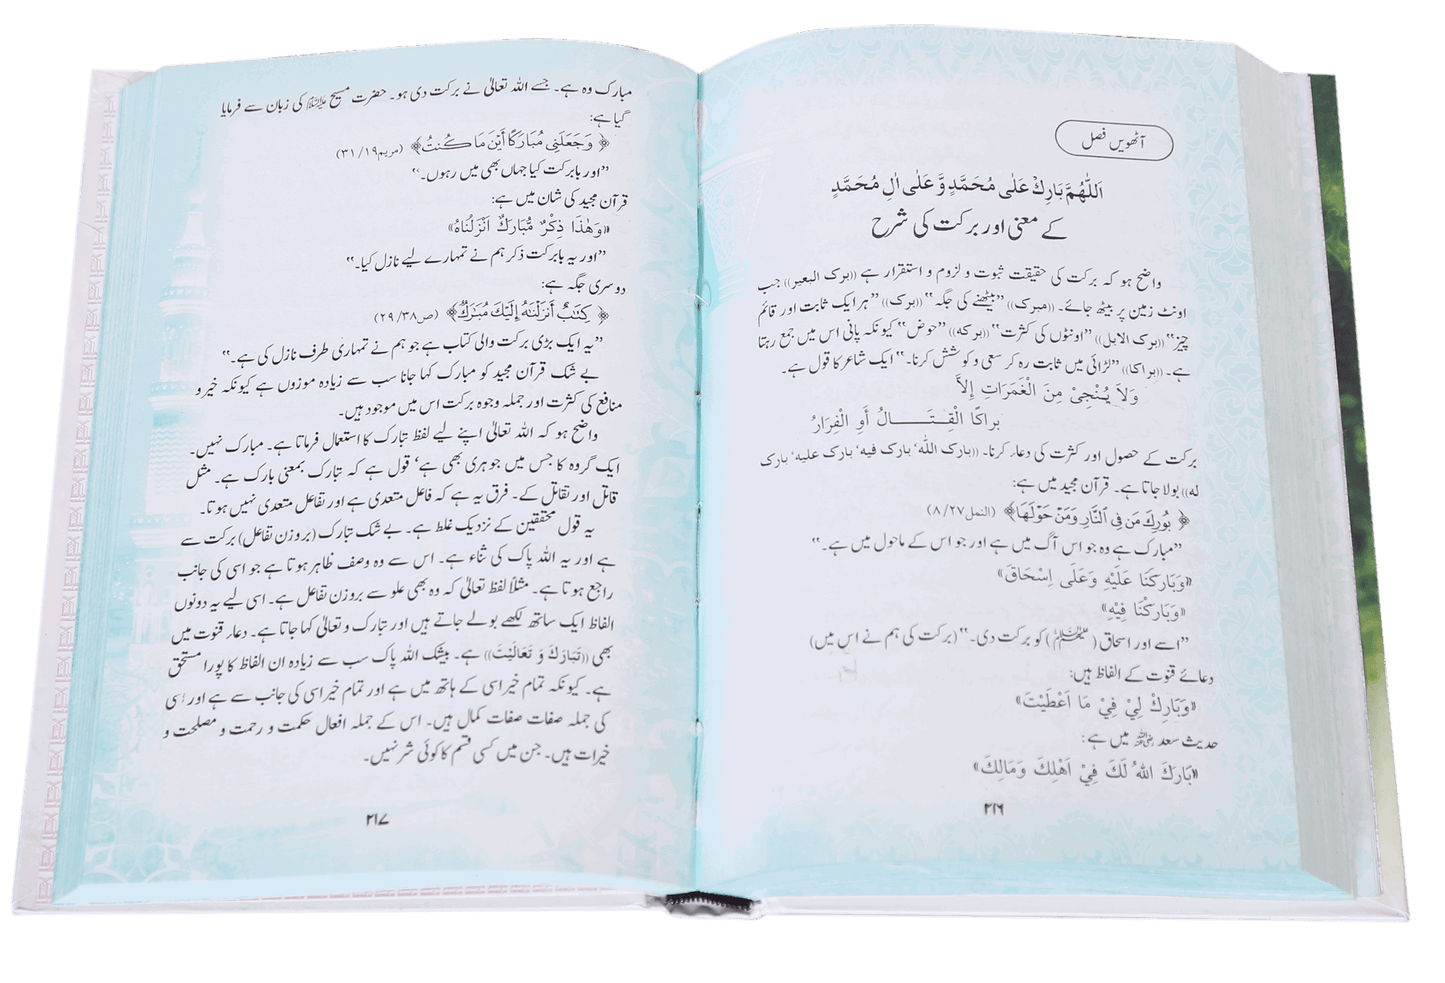 آٹھویں فصل
اَللّٰهُمَّ بَارِكْ عَلٰى مُحَمَّدٍ وَّ عَلٰى اٰلِ مُحَمَّدٍ
کے معنی اور برکت کی شرح
واضح ہو کہ برکت کی حقیقت ثبوت و لزوم و استقرار ہے ((برک البعیر)) جب
اونٹ زمین پر بیٹھ جائے۔ ((مبرک)) ”بیٹھنے کی جگہ“ ((برک)) ”ہر ایک ثابت اور قائم
چیز“ ((برک الابل)) ”اونٹوں کی کثرت“ ((برکه)) ”حوض“ کیونکہ پانی اس میں جمع رہتا
ہے۔ ((براکا)) ”لڑائی میں ثابت رہ کر سعی و کوشش کرنا۔“ ایک شاعر کا قول ہے۔
وَلاَ يُنْجِىْ مِنَ الْغَمَرَاتِ اِلاَّ
براكَا الْقِتَـــــالُ أَوِ الْفِرَارُ
برکت کے حصول اور کثرت کی دعاء کرنا۔ ((بارک الله‘ بارک فیه‘ بارک علیه‘ بارک
له)) بولا جاتا ہے۔ قرآن مجید میں ہے:
﴿ بُورِكَ مَن فِى النَّارِ وَمَنْ حَوْلَهَا﴾ (النمل۲۷/ ۸)
”مبارک ہے وہ جو اس آگ میں ہے اور جو اس کے ماحول میں ہے۔“
«وَبَارَكنَا عَلَيْهِ وَعَلَى اِسْحَاقَ»
«وَبَارَكْنَا فِيْهِ»
”اسے اور اسحاق (علیہ السلام) کو برکت دی۔“ (برکت کی ہم نے اس میں)
دعائے قنوت کے الفاظ ہیں:
«وَبَارِكْ لِيْ فِيْ مَا اَعْطَيْتَ»
حدیث سعد رضی اللہ عنہ میں ہے:
«بَارَكَ اللهُ لَكَ فِيْ اَهْلِكَ وَمَالِكَ»
۲۱۶
مبارک وہ ہے۔ جسے اللہ تعالیٰ نے برکت دی ہو۔ حضرت مسیح علیہ السلام کی زبان سے فرمایا
گیا ہے:
﴿ وَجَعَلَنِى مُبَارَكًا أَيْنَ مَا كُنتُ﴾ (مریم۱۹/ ۳۱)
”اور بابرکت کیا جہاں بھی میں رہوں۔“
قرآن مجید کی شان میں ہے:
«وَهٰذَا ذِكْرٌ مُّبَارَكٌ اَنْزَلْنَاهُ»
”اور یہ بابرکت ذکر ہم نے تمہارے لیے نازل کیا۔“
دوسری جگہ ہے:
﴿ كِتَٰبٌ أَنزَلْنَٰهُ إِلَيْكَ مُبَٰرَكٌ﴾ (ص۳۸/ ۲۹)
”یہ ایک بڑی برکت والی کتاب ہے جو ہم نے تمہاری طرف نازل کی ہے۔“
بے شک قرآن مجید کو مبارک کہا جانا سب سے زیادہ موزوں ہے کیونکہ خیر و
منافع کی کثرت اور جملہ وجوہ برکت اس میں موجود ہیں۔
واضح ہو کہ اللہ تعالیٰ اپنے لیے لفظ تبارک کا استعمال فرماتا ہے۔ مبارک نہیں۔
ایک گروہ کا جس میں جوہری بھی ہے‘ قول ہے کہ تبارک بمعنی بارک ہے۔ مثل
قاتل اور تقاتل کے۔ فرق یہ ہے کہ فاعل متعدی ہے اور تفاعل متعدی نہیں ہوتا۔
یہ قول محققین کے نزدیک غلط ہے۔ بے شک تبارک (بروزن تفاعل) برکت سے
ہے اور یہ اللہ پاک کی ثناء ہے۔ اس سے وہ وصف ظاہر ہوتا ہے جو اسی کی جانب
راجع ہوتا ہے۔ مثلاً لفظ تعالیٰ کہ وہ بھی علو سے بروزن تفاعل ہے۔ اسی لیے یہ دونوں
الفاظ ایک ساتھ لکھے بولے جاتے ہیں اور تبارک و تعالیٰ کہا جاتا ہے۔ دعاء قنوت میں
بھی ((تَبَارَكَ وَ تَعَالَيْتَ)) ہے۔ بیشک اللہ پاک سب سے زیادہ ان الفاظ کا پورا مستحق
ہے۔ کیونکہ تمام خیر اسی کے ہاتھ میں ہے اور تمام خیر اسی کی جانب سے ہے اور اسی
کی جملہ صفات صفات کمال ہیں۔ اس کے جملہ افعال حکمت و رحمت و مصلحت و
خیرات ہیں۔ جن میں کسی قسم کا کوئی شر نہیں۔
۲۱۷